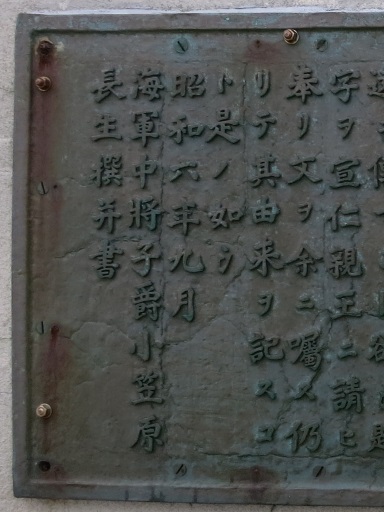 字ヲ宣仁親王ニ請ヒ
奉リ文ヲ余ニ囑ス仍
リテ其由来ヲ記スコ
ト是ノ如シ
昭和六年九月
海軍中将子爵小笠原
長生撰并書